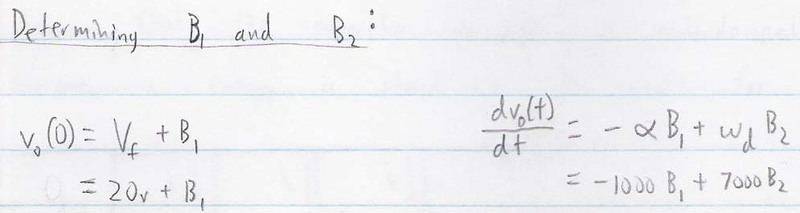 Determining B₁ and B₂:
v₀(0) = V_f + B₁
= 20v + B₁
dv₀(t)/dt = - α B₁ + w_d B₂
= -1000 B₁ + 7000 B₂